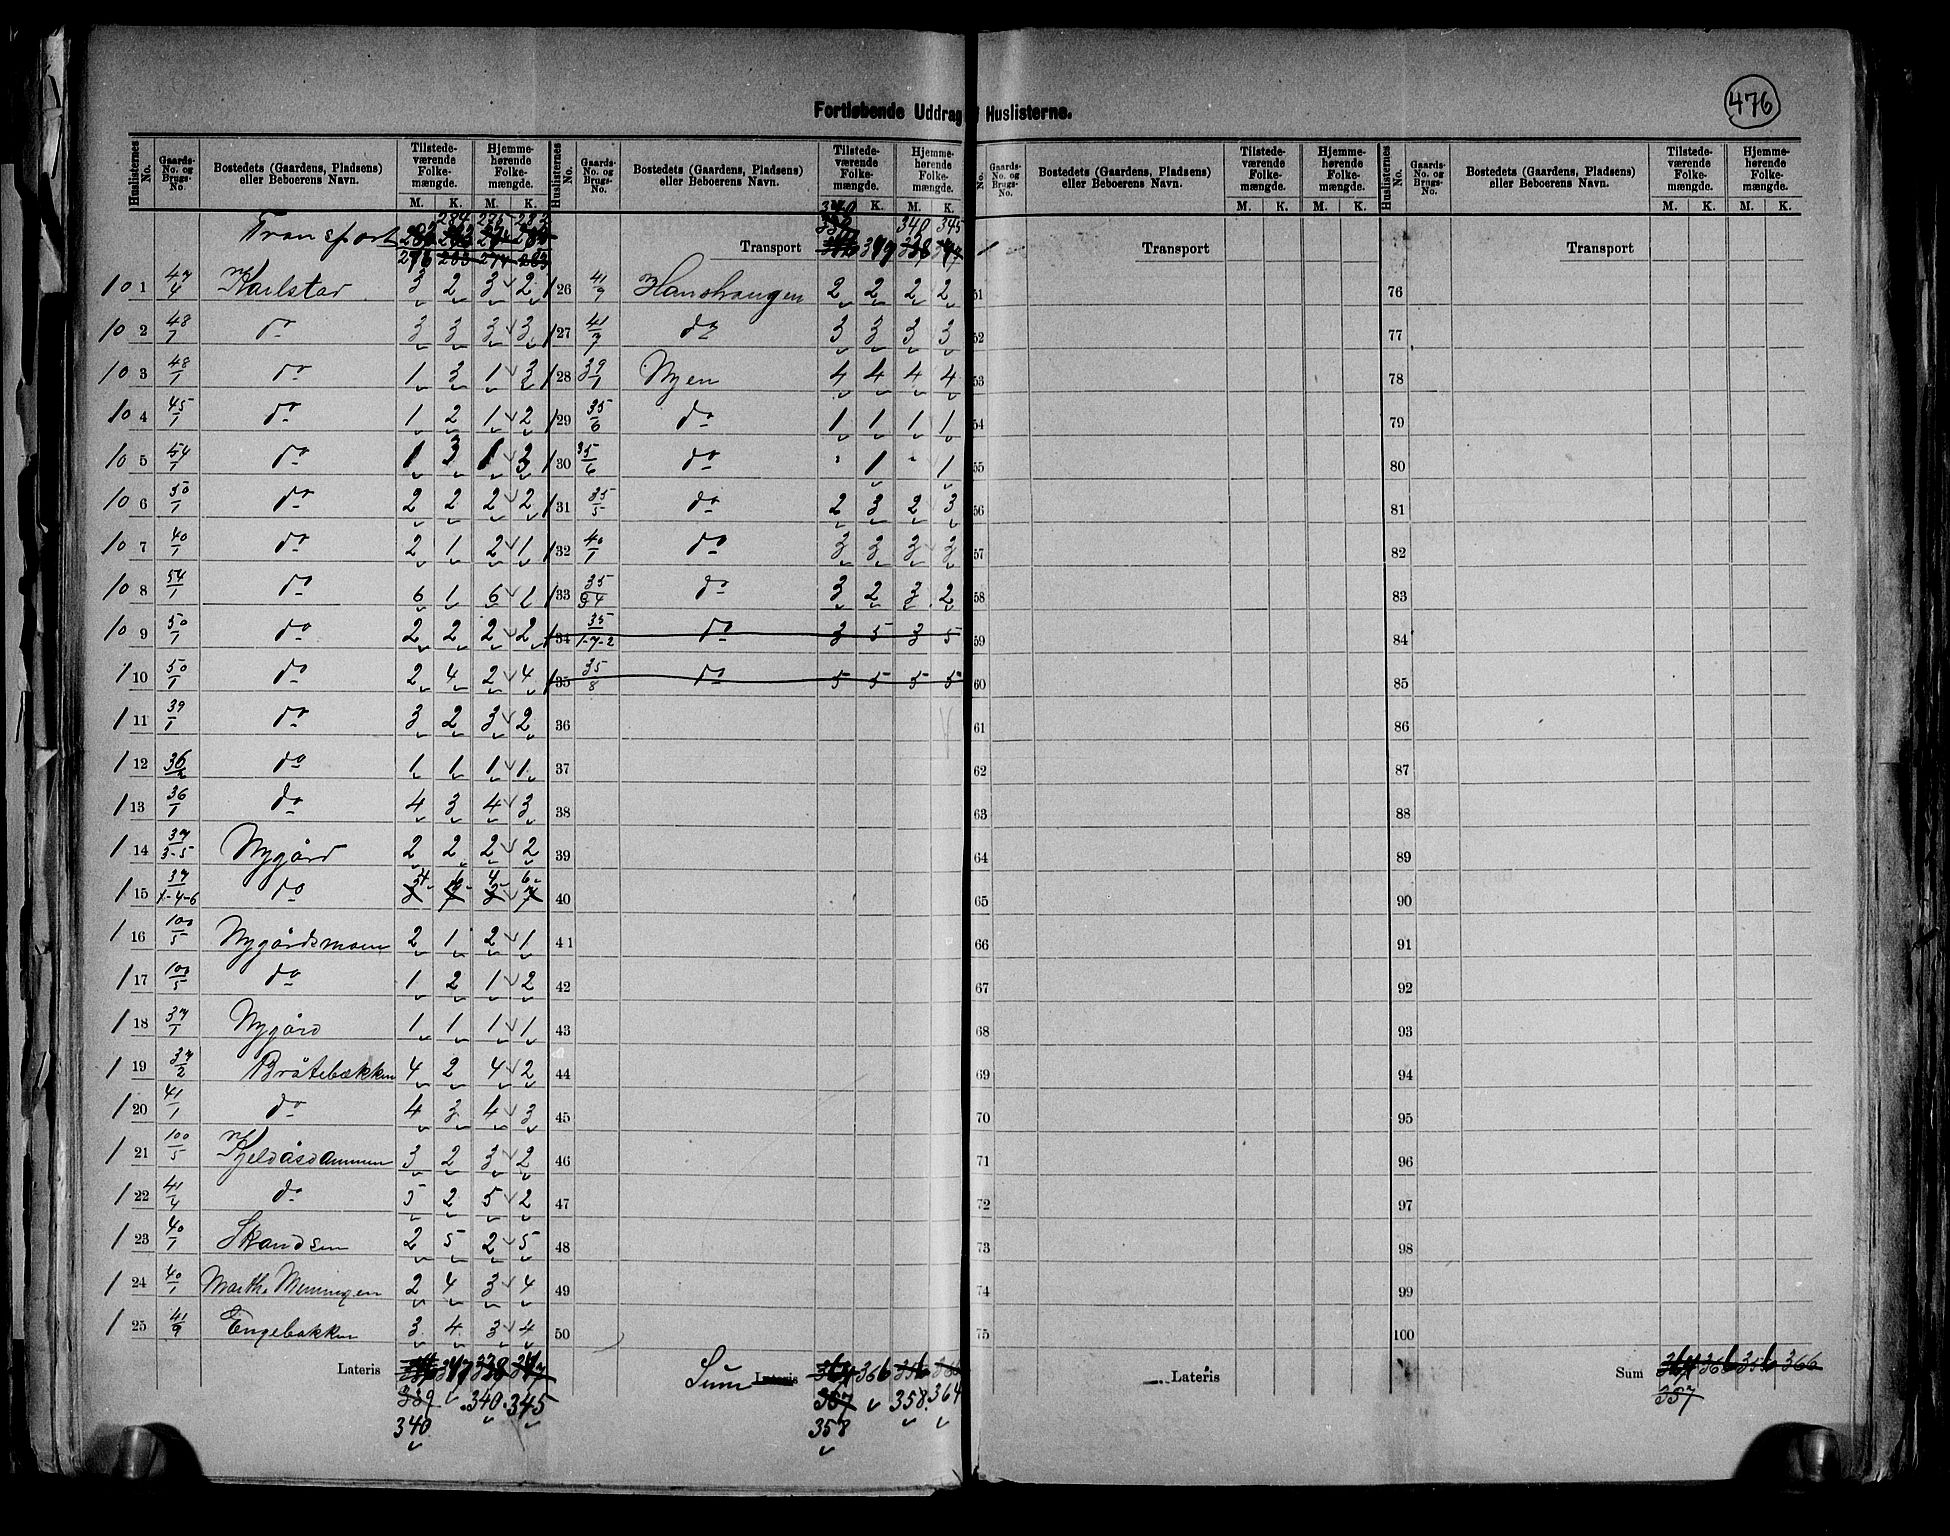 476
Fortløbende Uddrag Huslisterne.
Huslisternes No. | Gaards-No. og Brugs-No. | Bostedets (Gaardens, Pladsens) eller Beboerens Navn. | Tilstede-værende Folke-mængde. M. K. | Hjemme-hørende Folke-mængde. M. K.
Transport 284 275 282
101 47/4 Karlstad 3 2 3 2
102 48/7 do 3 3 3 3
103 48/1 do 1 3 1 3
104 45/1 do 1 2 1 2
105 54/1 do 1 3 1 3
106 50/1 do 2 2 2 2
107 40/1 do 2 1 2 1
108 54/1 do 6 1 6 1
109 50/1 do 2 2 2 2
110 50/1 do 2 4 2 4
111 39/1 do 3 2 3 2
112 36/2 do 1 1 1 1
113 36/1 do 4 3 4 3
114 37/3-5 Nygård 2 2 2 2
115 37/1-4-6 do 4 6 4 6
116 100/5 Nygårdsmoen 2 1 2 1
117 100/5 do 1 2 1 2
118 37/1 Nygård 1 1 1 1
119 37/2 Bråtebækken 4 2 4 2
120 41/1 do 4 3 4 3
121 100/5 Kjeldåsdammen 3 2 3 2
122 41/4 do 5 2 5 2
123 40/1 Skandsen 2 5 2 5
124 40/1 Marthe 2 4 3 4
125 41/9 Engebakken 3 4 3 4
Lateris 347 338 347
339 340 345
340
Huslisternes No. | Gaards-No. og Brugs-No. | Bostedets (Gaardens, Pladsens) eller Beboerens Navn. | Tilstede-værende Folke-mængde. M. K. | Hjemme-hørende Folke-mængde. M. K.
340 340 345
Transport 347 338 347
126 41/9 Hanshaugen 2 2 2 2
127 41/9 do 3 3 3 3
128 39/1 Nyen 4 4 4 4
129 35/6 do 1 1 1 1
130 35/6 do " 1 " 1
131 35/5 do 2 3 2 3
132 40/1 do 3 3 3 3
133 35/34 do 3 2 3 2
134 35/1-7-2 do 3 5 3 5
135 35/8 do 5 5 5 5
36
37
38
39
40
41
42
43
44
45
46
47
48
49
50
Sum Lateris 366 356
357 358 364
358
No. | Gaards-No. og Brugs-No. | Bostedets (Gaardens, Pladsens) eller Beboerens Navn. | Tilstede-værende Folke-mængde. M. K. | Hjemme-hørende Folke-mængde. M. K.
Transport
51
52
53
54
55
56
57
58
59
60
61
62
63
64
65
66
67
68
69
70
71
72
73
74
75
Lateris
Huslisternes No. | Gaards-No. og Brugs-No. | Bostedets (Gaardens, Pladsens) eller Beboerens Navn. | Tilstede-værende Folke-mængde. M. K. | Hjemme-hørende Folke-mængde. M. K.
Transport
76
77
78
79
80
81
82
83
84
85
86
87
88
89
90
91
92
93
94
95
96
97
98
99
100
Sum 364 366 356 366
357